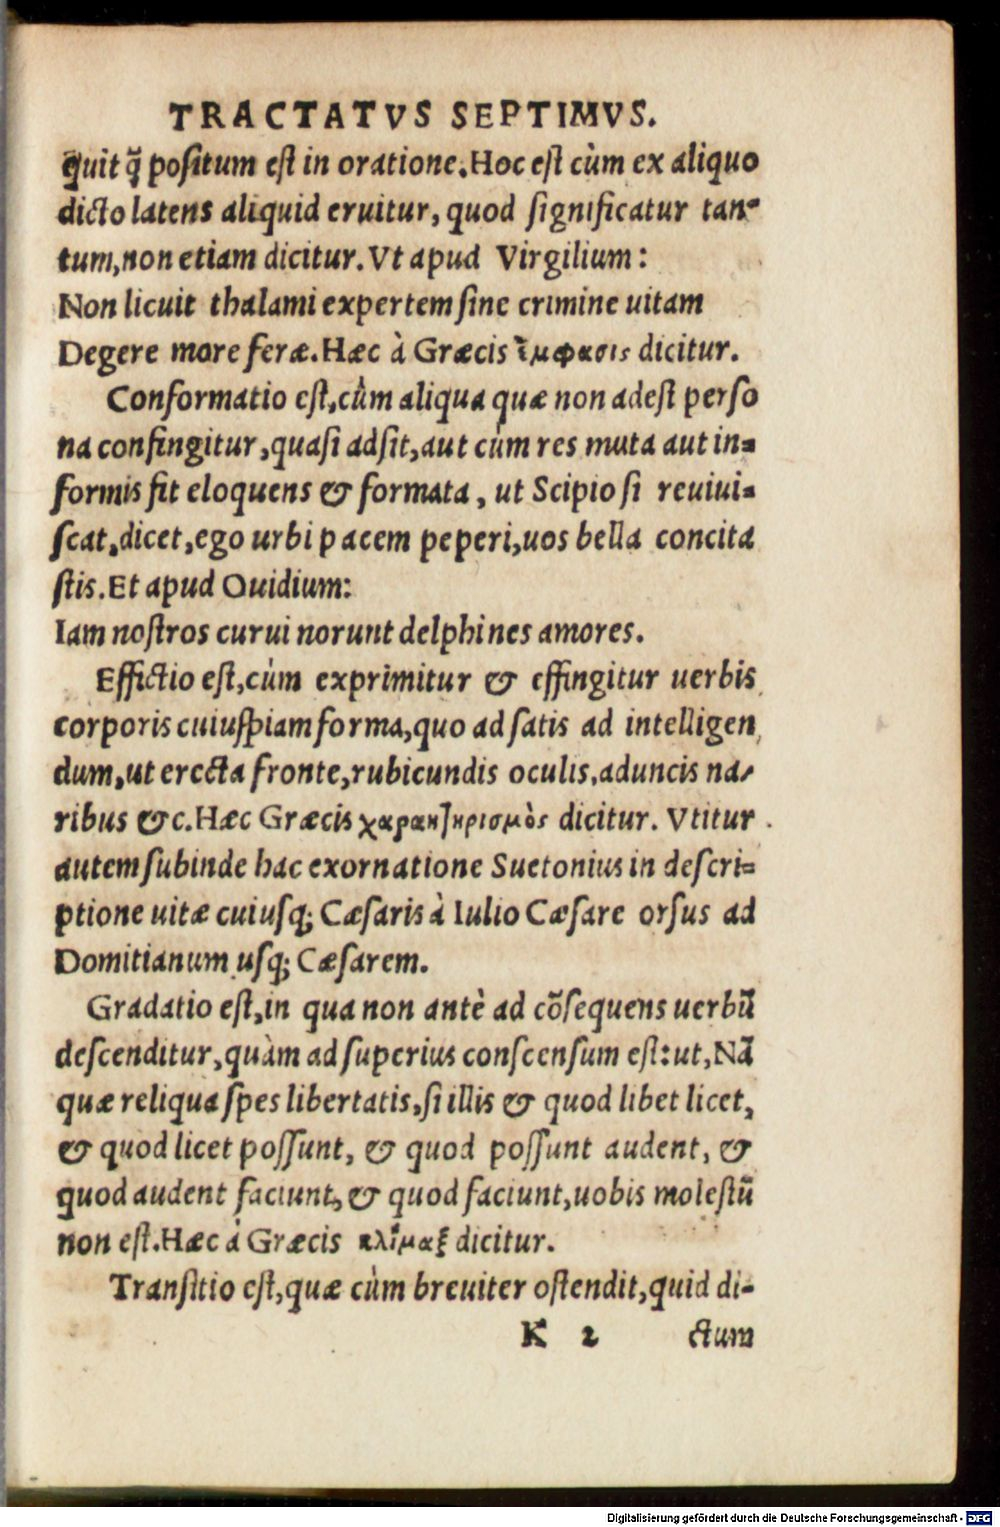 TRACTATVS SEPTIMVS.
quit q̃ positum est in oratione. Hoc est cùm ex aliquo
dicto latens aliquid eruitur, quod significatur tan-
tum, non etiam dicitur. Vt apud Virgilium:
Non licuit thalami expertem sine crimine uitam
Degere more feræ. Hæc à Græcis ἔμφασις dicitur.
Conformatio est, cùm aliqua quæ non adest perso
na confingitur, quasi adsit, aut cùm res muta aut in-
formis fit eloquens & formata, ut Scipio si reuiui-
scat, dicet, ego urbi pacem peperi, uos bella concita
stis. Et apud Ouidium:
Iam nostros curui norunt delphines amores.
Effictio est, cùm exprimitur & effingitur uerbis
corporis cuiuspiam forma, quo ad satis ad intelligen
dum, ut erecta fronte, rubicundis oculis, aduncis na-
ribus &c. Hæc Græcis χαρακτηρισμὸς dicitur. Vtitur
autem subinde hac exornatione Suetonius in descri-
ptione uitæ cuiusq; Cæsaris à Iulio Cæsare orsus ad
Domitianum usq; Cæsarem.
Gradatio est, in qua non antè ad cõsequens uerbũ
descenditur, quàm ad superius conscensum est: ut, Nã
quæ reliqua spes libertatis, si illis & quod libet licet,
& quod licet possunt, & quod possunt audent, &
quod audent faciunt, & quod faciunt, uobis molestũ
non est. Hæc à Græcis κλῖμαξ dicitur.
Transitio est, quæ cùm breuiter ostendit, quid di-
K 2 ctum
Digitalisierung gefördert durch die Deutsche Forschungsgemeinschaft - DFG